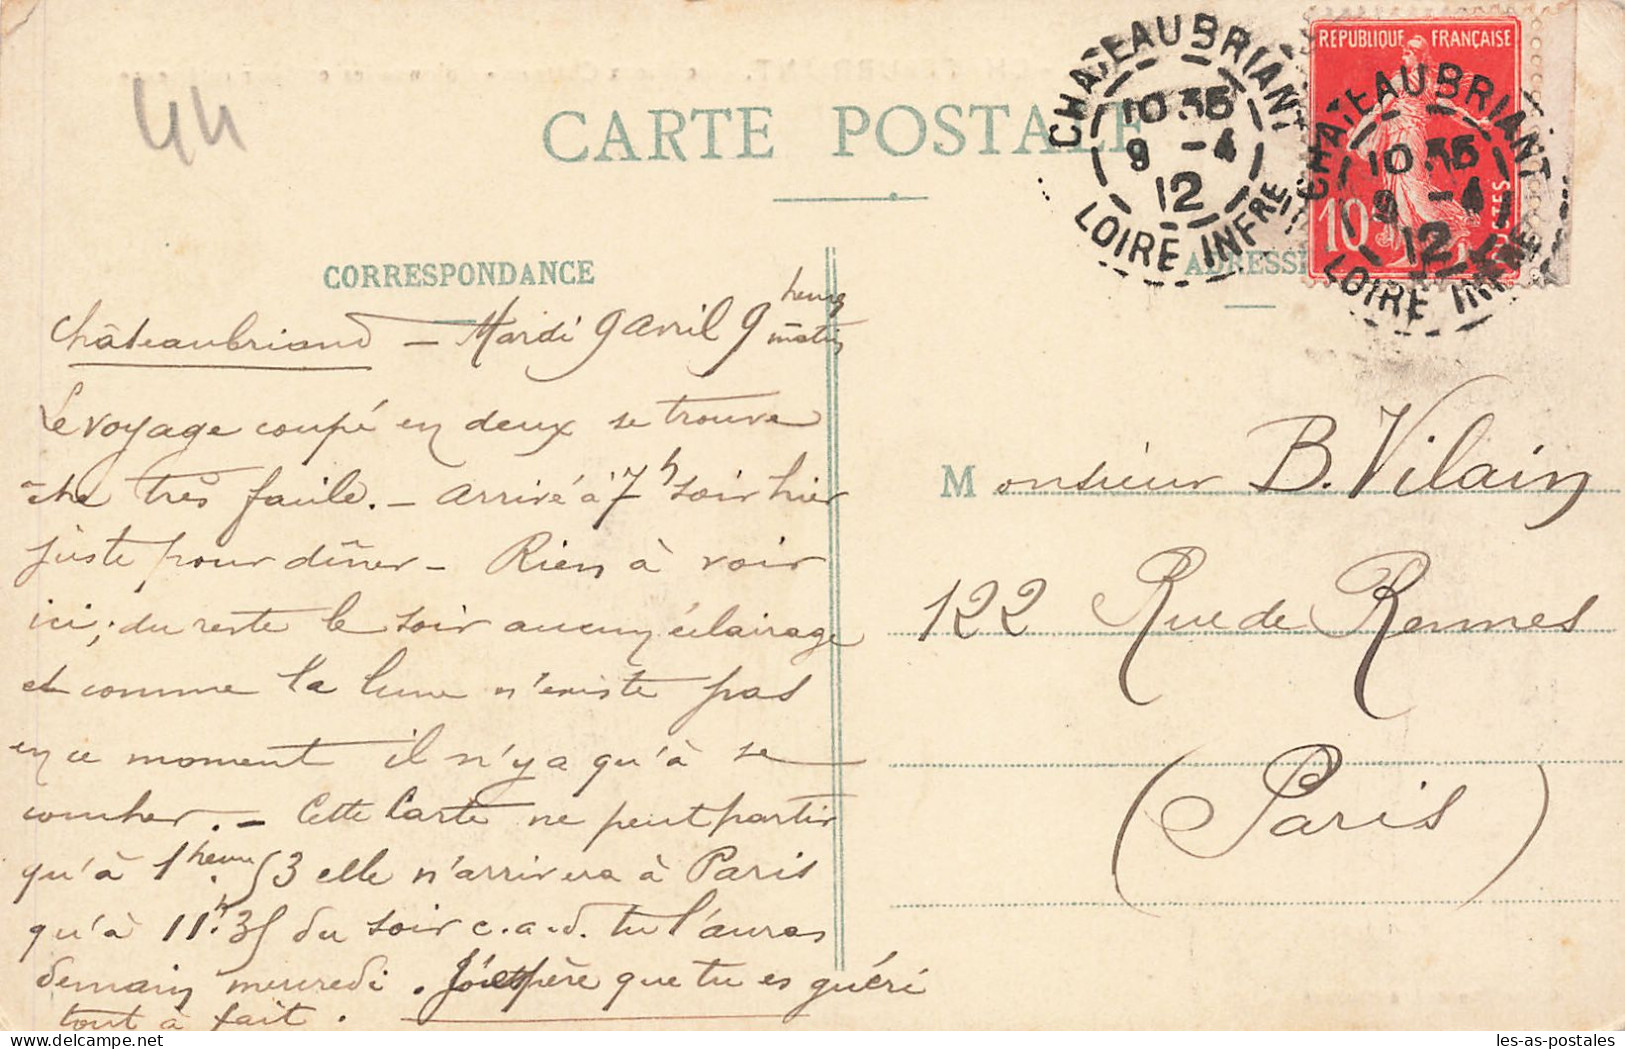 44
CARTE POSTALE
CHATEAUBRIANT
10.35
9 - 4
12
LOIRE INFRE
REPUBLIQUE FRANÇAISE
10
CHATEAUBRIANT
10.35
9 - 4
12
LOIRE INFRE
CORRESPONDANCE
ADRESSE
Châteaubriand - Mardi 9 avril 9 heures matin
Le voyage coupé en deux se trouve
être très facile. - Arrivé à 7h soir hier
juste pour dîner - Rien à voir
ici; du reste le soir aucun éclairage
et comme la lune n'existe pas
en ce moment il n'y a qu'à se
coucher. - Cette Carte ne peut partir
qu'à 1 heure 53 elle n'arrivera à Paris
qu'à 11h.35 du soir c.a.d. tu l'auras
demain mercredi. J'espère que tu es guéri
tout à fait.
Monsieur B. Vilain
122 Rue de Rennes
(Paris)
les-as-postales